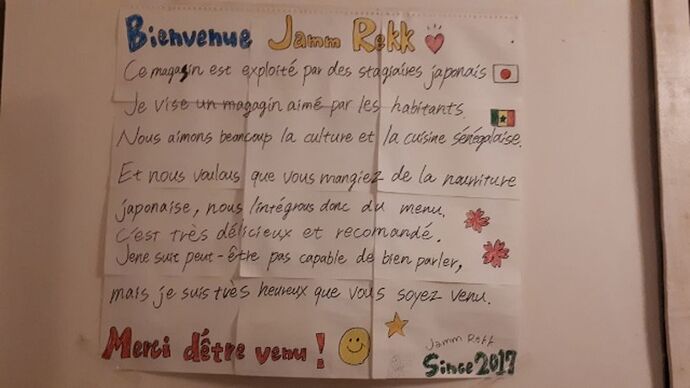 Bienvenue Jamm Rekk
Ce magasin est exploité par des stagiaires japonais
Je vise un magagin aimé par les habitants.
Nous aimons beancoup la culture et la cuisine sénégalaise.
Et nous voulous que vous mangiez de la nourriture
japonaise, nous l'intégrons donc du menu.
C'est très délicieux et recomandé.
Jene suit peut-être pas capable de bien parler,
mais je suis très heureux que vous soyez venu.
Merci d'être venu !
Jamm Rekk
Since 2017